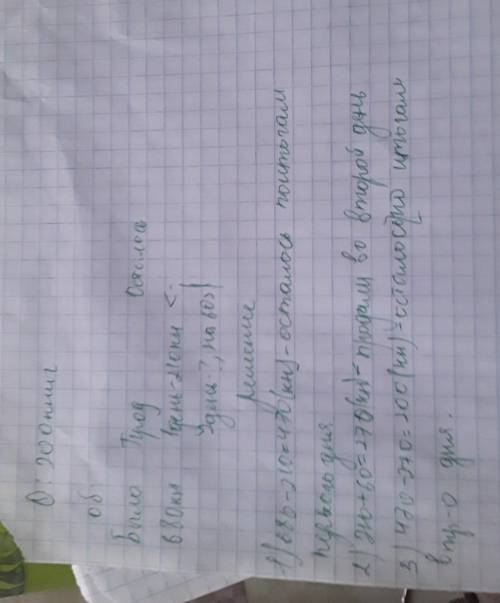 О: 200 книг
об
Было Прод Осталось
680кн 1день-210кн <-
2день-?, на 60>|
решение
1) 680-210=470(кн)-осталось поитогам
первого дня
2) 210+60=270(кн)-продали во второй день
3) 470-270=200(кн)-осталось по итогам
втр-о дня.